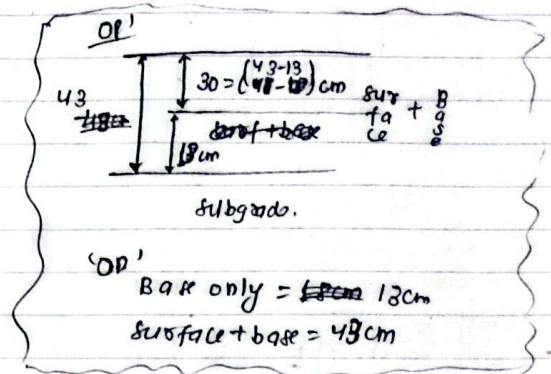 OP'
43
30 = (43-13) cm
surface + Base
13 cm
subgrado.
'OP'
Base only = 13cm
surface + base = 43cm